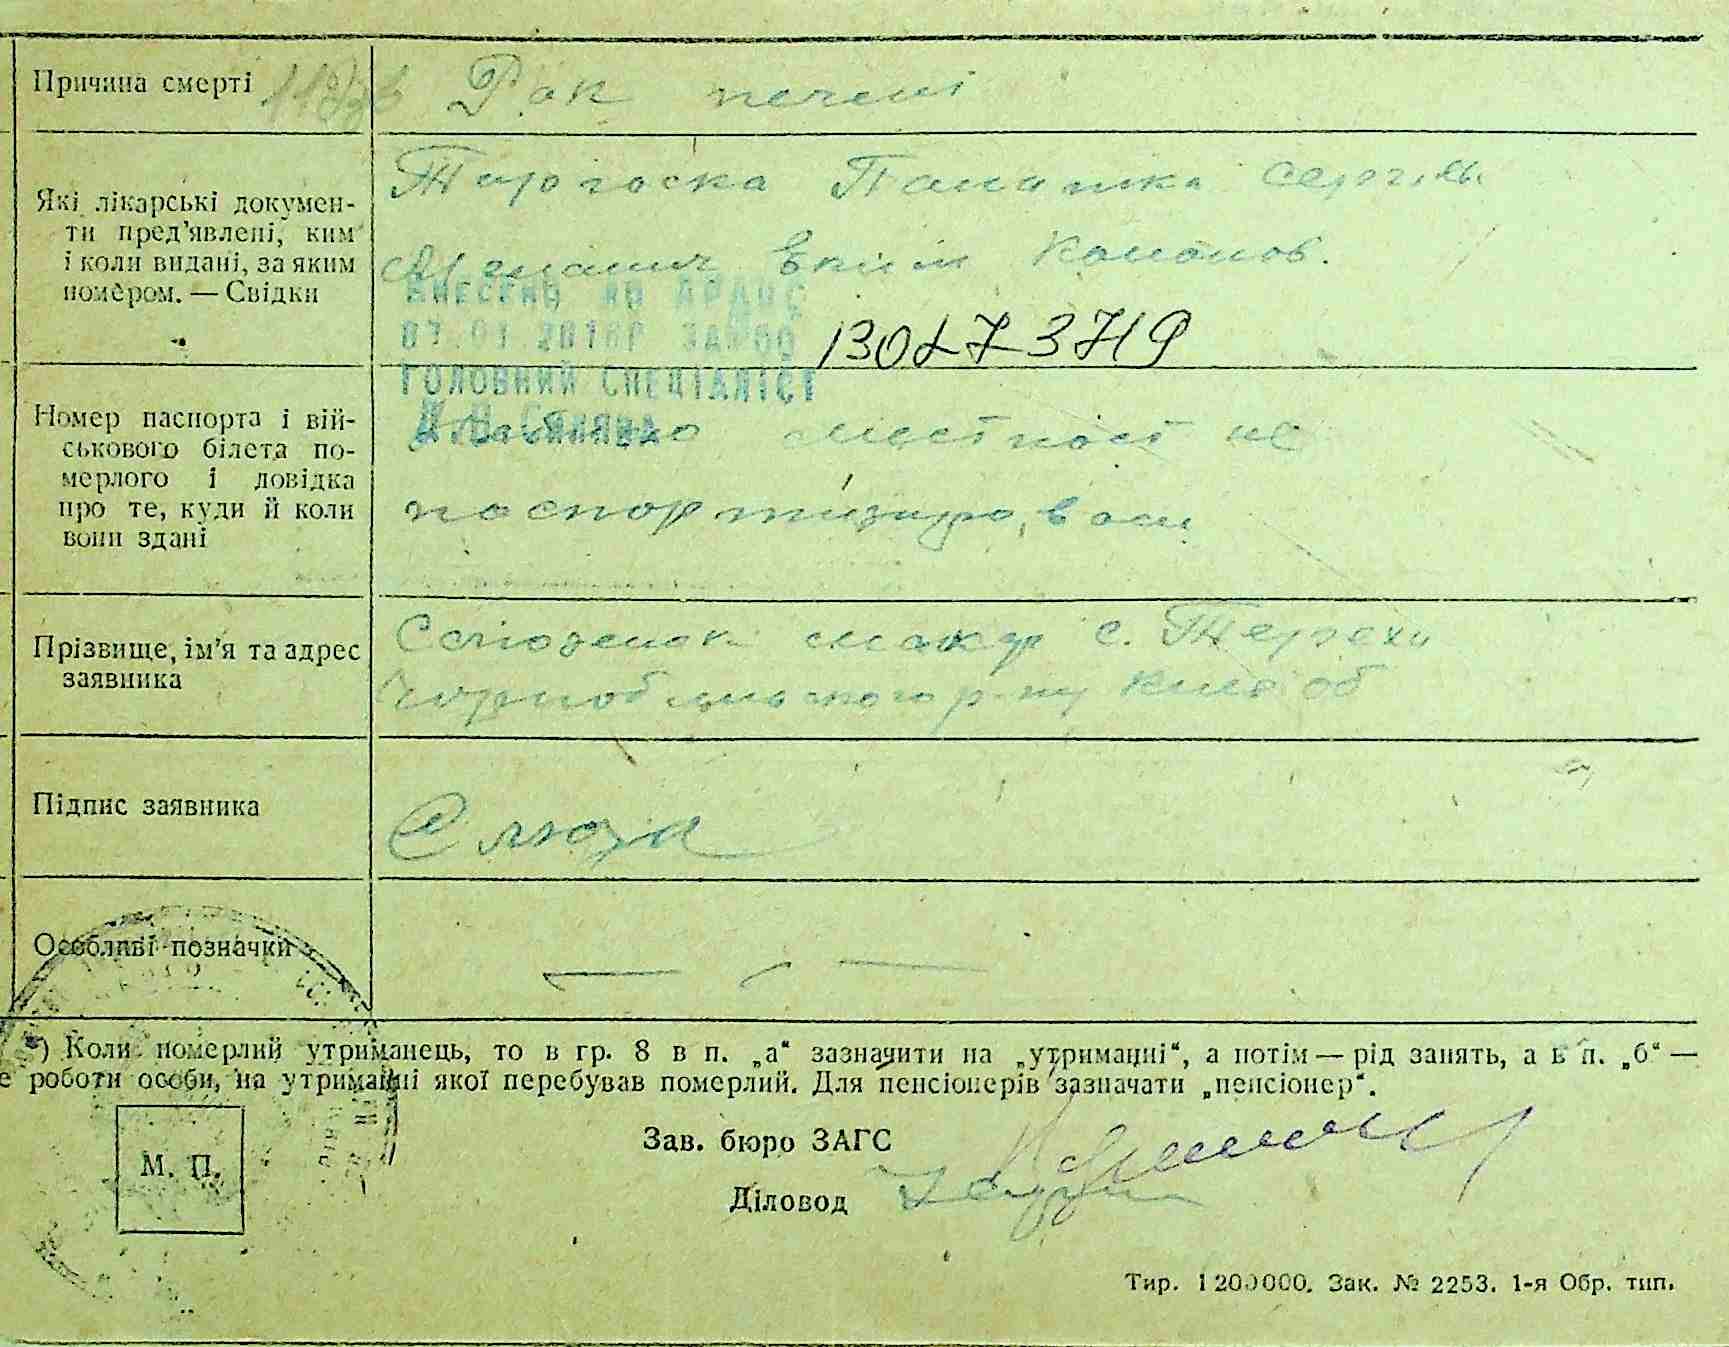 Причина смерті
Рак печені
Які лікарські докумен-
ти пред'явлені, ким
і коли видані, за яким
номером. — Свідки
Сергієв.
Еким Кононов.
ВНЕСЕНО ДО ДРАЦС
ГОЛОВНИЙ СПЕЦІАЛІСТ
Номер паспорта і вій-
ськового білета по-
мерлого і довідка
про те, куди й коли
вони здані
местност не
паспортизирована
Прізвище, ім'я та адрес
заявника
макар с. Терехи
Чорнобильского р-ну Київ об
Підпис заявника
Особливі позначки
*) Коли померлий утриманець, то в гр. 8 в п. „а“ зазначити на „утриманні“, а потім — рід занять, а в п. „б“ —
е роботи особи, на утриманні якої перебував померлий. Для пенсіонерів зазначати „пенсіонер“.
Зав. бюро ЗАГС
М. П.
Діловод
Тир. 1 200000. Зак. № 2253. 1-я Обр. тип.